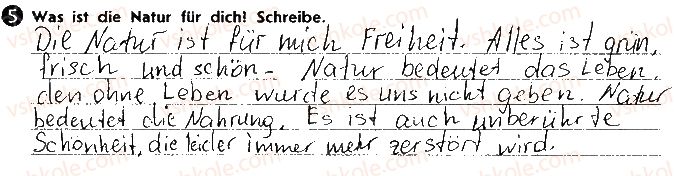 5 Was ist die Natur für dich! Schreibe.
Die Natur ist für mich Freiheit. Alles ist grün,
frisch und schön. Natur bedeutet das Leben,
den ohne Leben wurde es uns nicht geben. Natur
bedeutet die Nahrung. Es ist auch unberührte
Schönheit, die leider immer mehr zerstört wird.